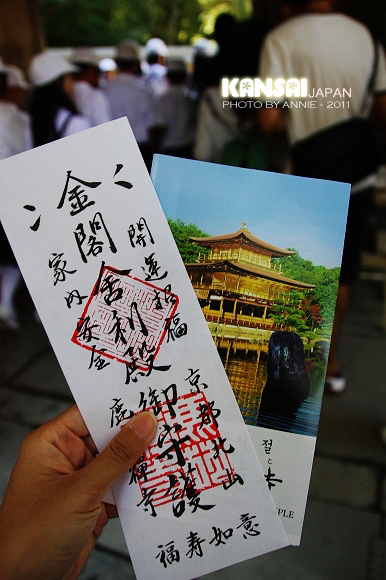 KANSAI JAPAN
PHOTO BY ANNIE - 2011
金閣舎利殿御守護
開運招福
家内安全
京都北山
鹿苑禅寺
福寿如意
절
じ
寺
PLE